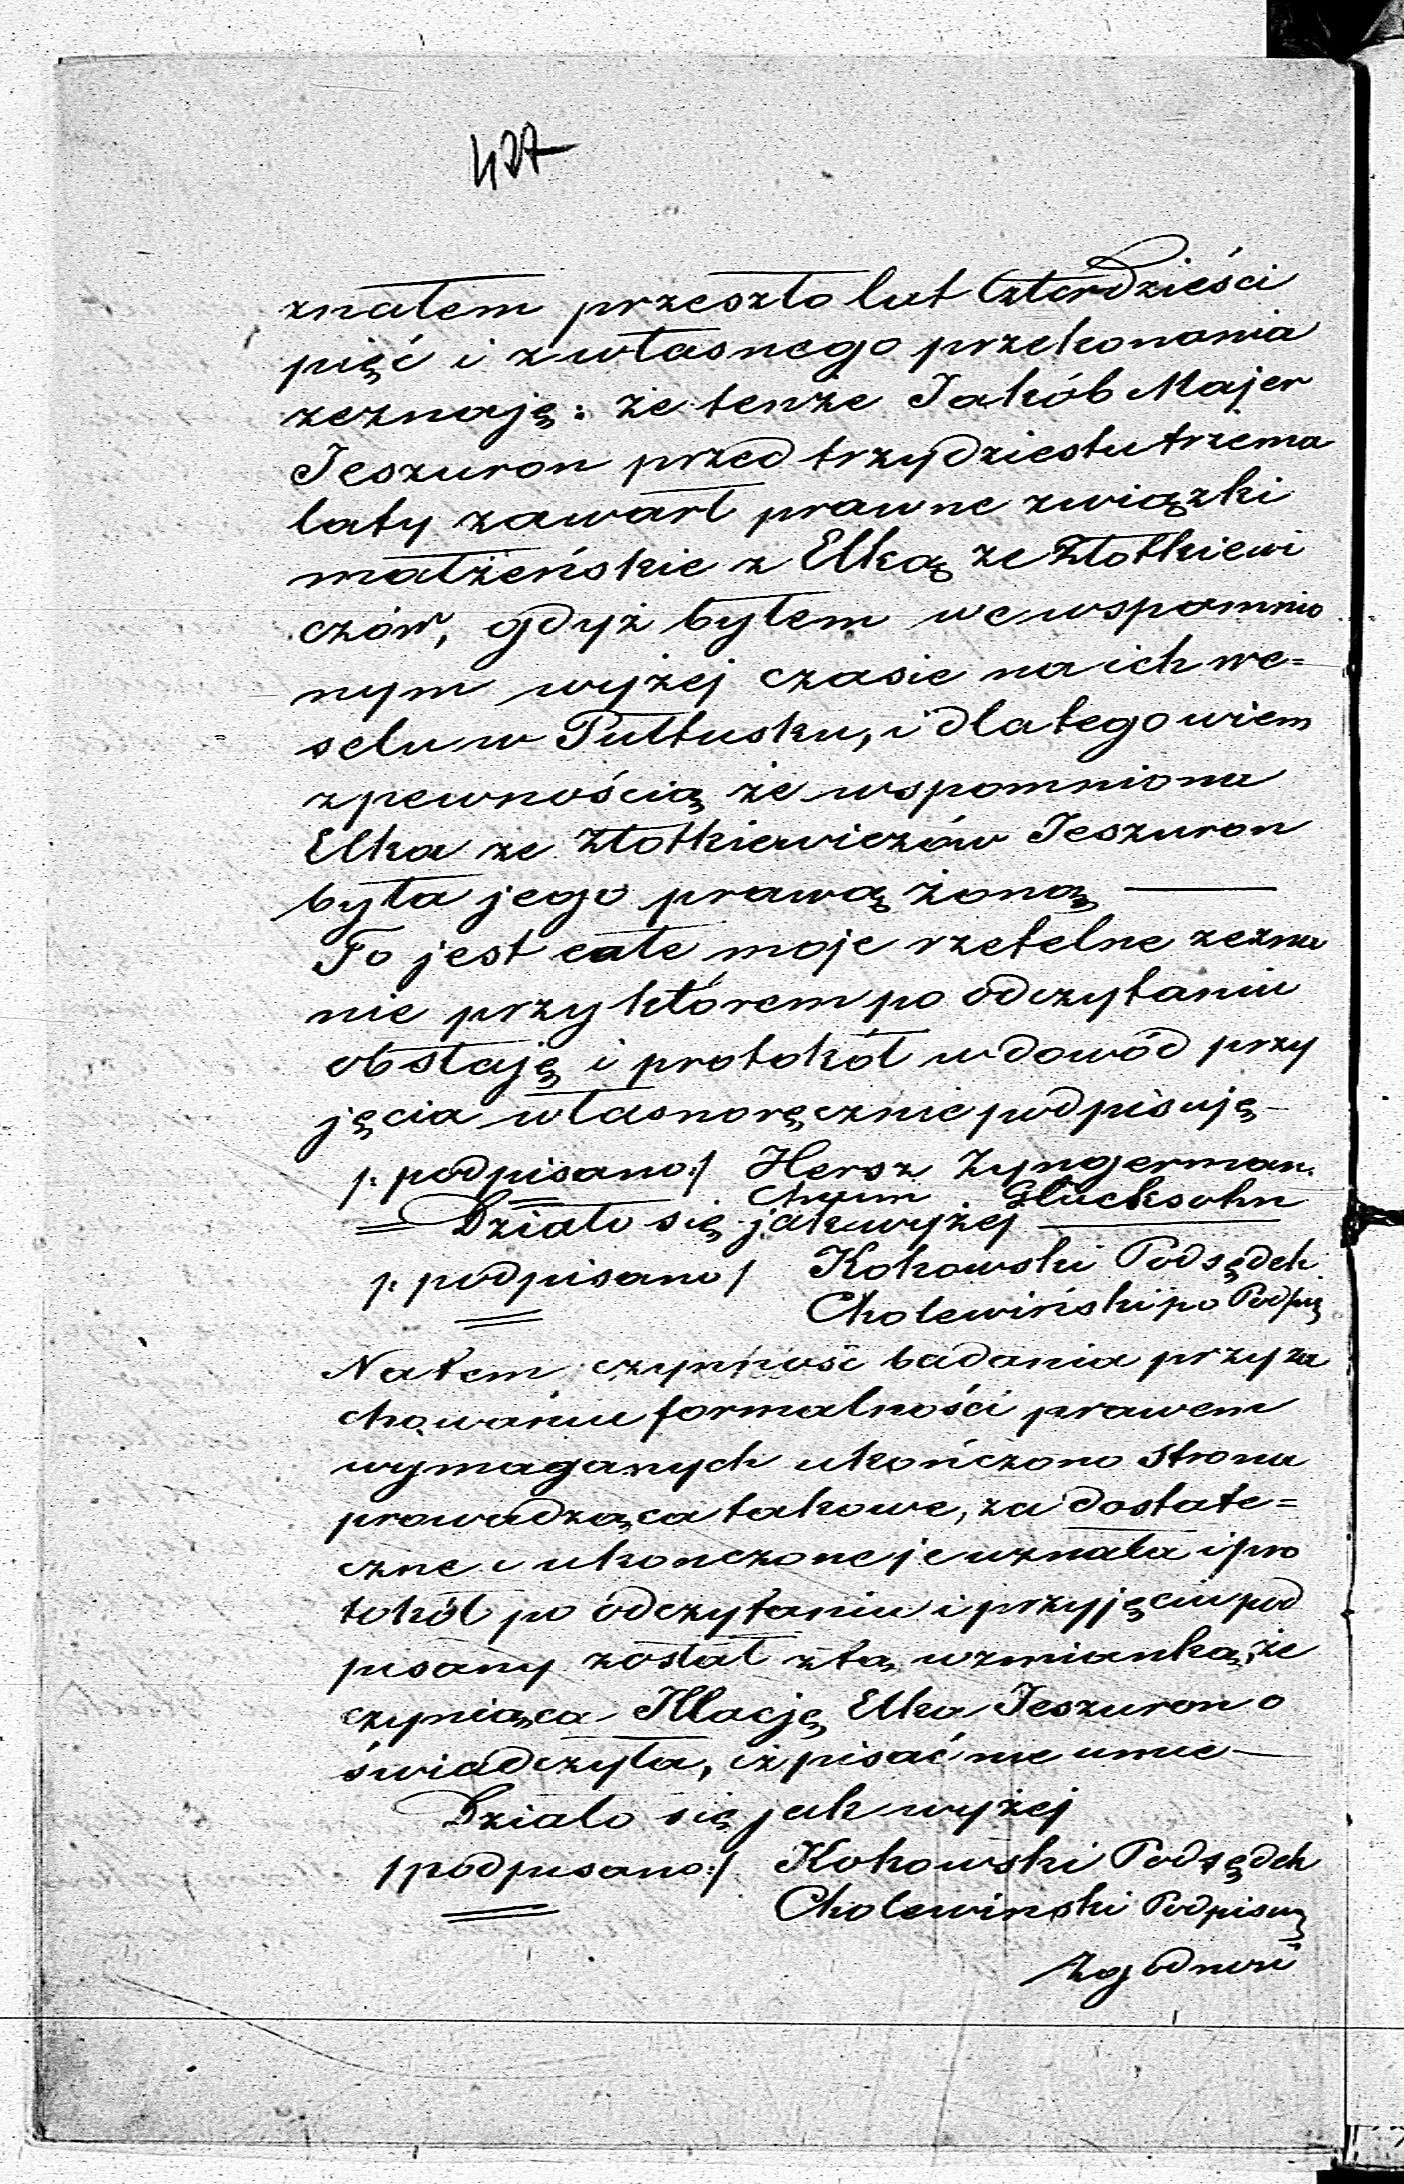 427
znałem przeszło lat Czterdzieści
pięć i z własnego przekonania
zeznaję: że tenże Jakób Majer
Jeszuron przed trzydziestu trzema
laty zawarł prawne związki
małżeńskie z Elką ze Złotkiewi
czów, gdyż byłem we wspomnio
nym wyżej czasie na ich we=
selu w Pułtusku, i dla tego wiem
z pewnością że wspomniona
Elka ze Złotkiewiczów Jeszuron
była jego prawą żoną ———
To jest całe moje rzetelne zezna
nie przy którem po odczytaniu
obstaję i protokół w dowód przy
jęcia własnoręcznie podpisuję —
/: podpisano :/ Hersz Zyngerman
Chaim Glücksohn
= Działo się jak wyżej ———
/: podpisano / Kokowski Podsędek
Cholewiński po Podpis
Na tem czynność badania przy za
chowaniu formalności prawem
wymaganych ukończono strona
prowadząca takowe, za dostate=
czne i ukonczone je uznała i pro
tokół po odczytaniu i przyjęciu pod
pisany został z tą wzmianką, że
czyniąca Illację Elka Jeszuron o
świadczyła, iż pisać nie umie —
Działo się jak wyżej
/podpisano :/ Kokowski Podsędek
Cholewinski Podpis